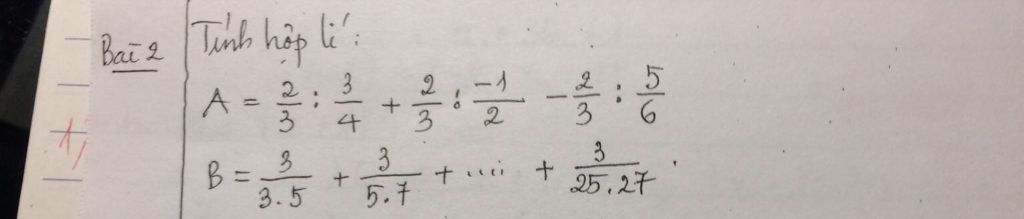 Bài 2 Tính hợp lí:
A = 2/3 : 3/4 + 2/3 : -1/2 - 2/3 : 5/6
1,
B = 3/3.5 + 3/5.7 + ..... + 3/25.27.